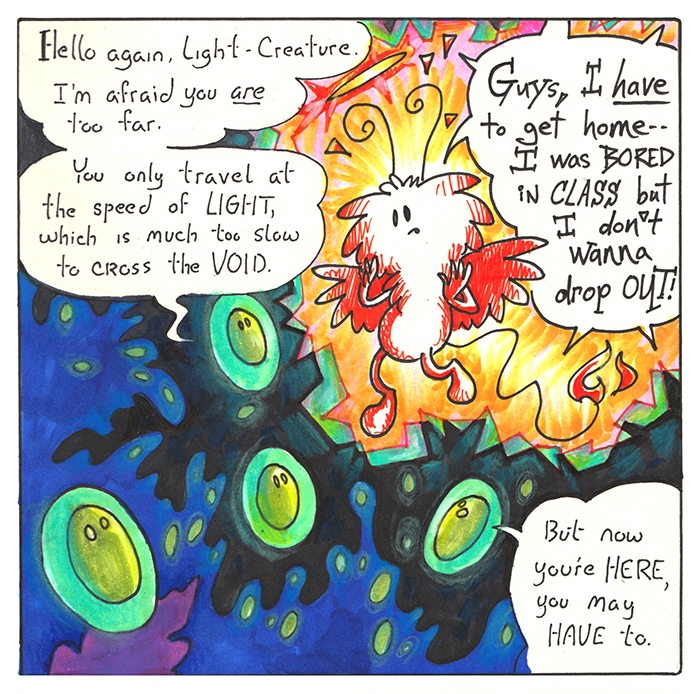 Hello again, Light-Creature.
I'm afraid you are
too far.
You only travel at
the speed of LIGHT,
which is much too slow
to cross the VOID.
Guys, I have
to get home--
I was BORED
iN CLASS but
I don't
wanna
drop OUT!
But now
you're HERE,
you may
HAVE to.